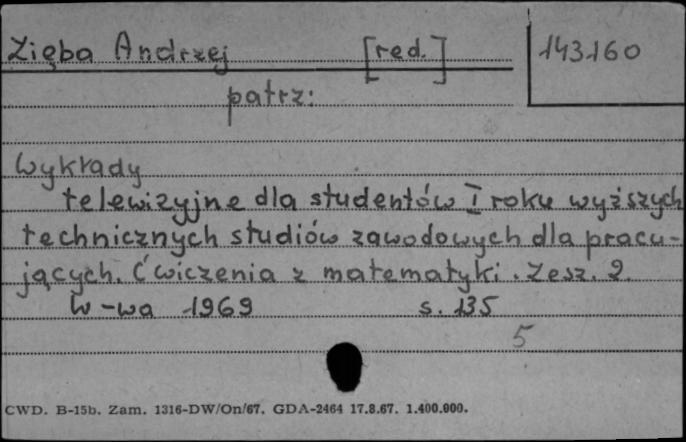 Zięba Andrzej [red.] 143160
patrz:
Wykłady
telewizyjne dla studentów I roku wyższych
technicznych studiów zawodowych dla pracu-
jących. Ćwiczenia z matematyki. Zesz. 2.
W-wa 1969 s. 135
5
CWD. B-15b. Zam. 1316-DW/On/67. GDA-2464 17.8.67. 1.400.000.